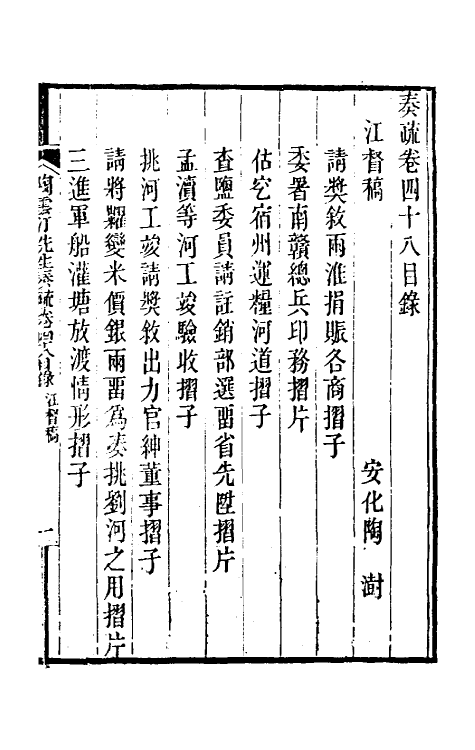 奏疏卷四十八目錄
江督稿　安化陶　澍
請獎敘兩淮捐賑各商摺子
委署南贛總兵印務摺片
估空宿州運糧河道摺子
查鹽委員請註銷部選畱省先陞摺片
孟瀆等河工竣驗收摺子
挑河工竣請獎敘出力官紳董事摺子
請將糶變米價銀兩畱為委挑劉河之用摺片
三進軍船灌塘放渡情形摺子
陶雲汀先生奏疏卷四十八目錄　江督稿　一